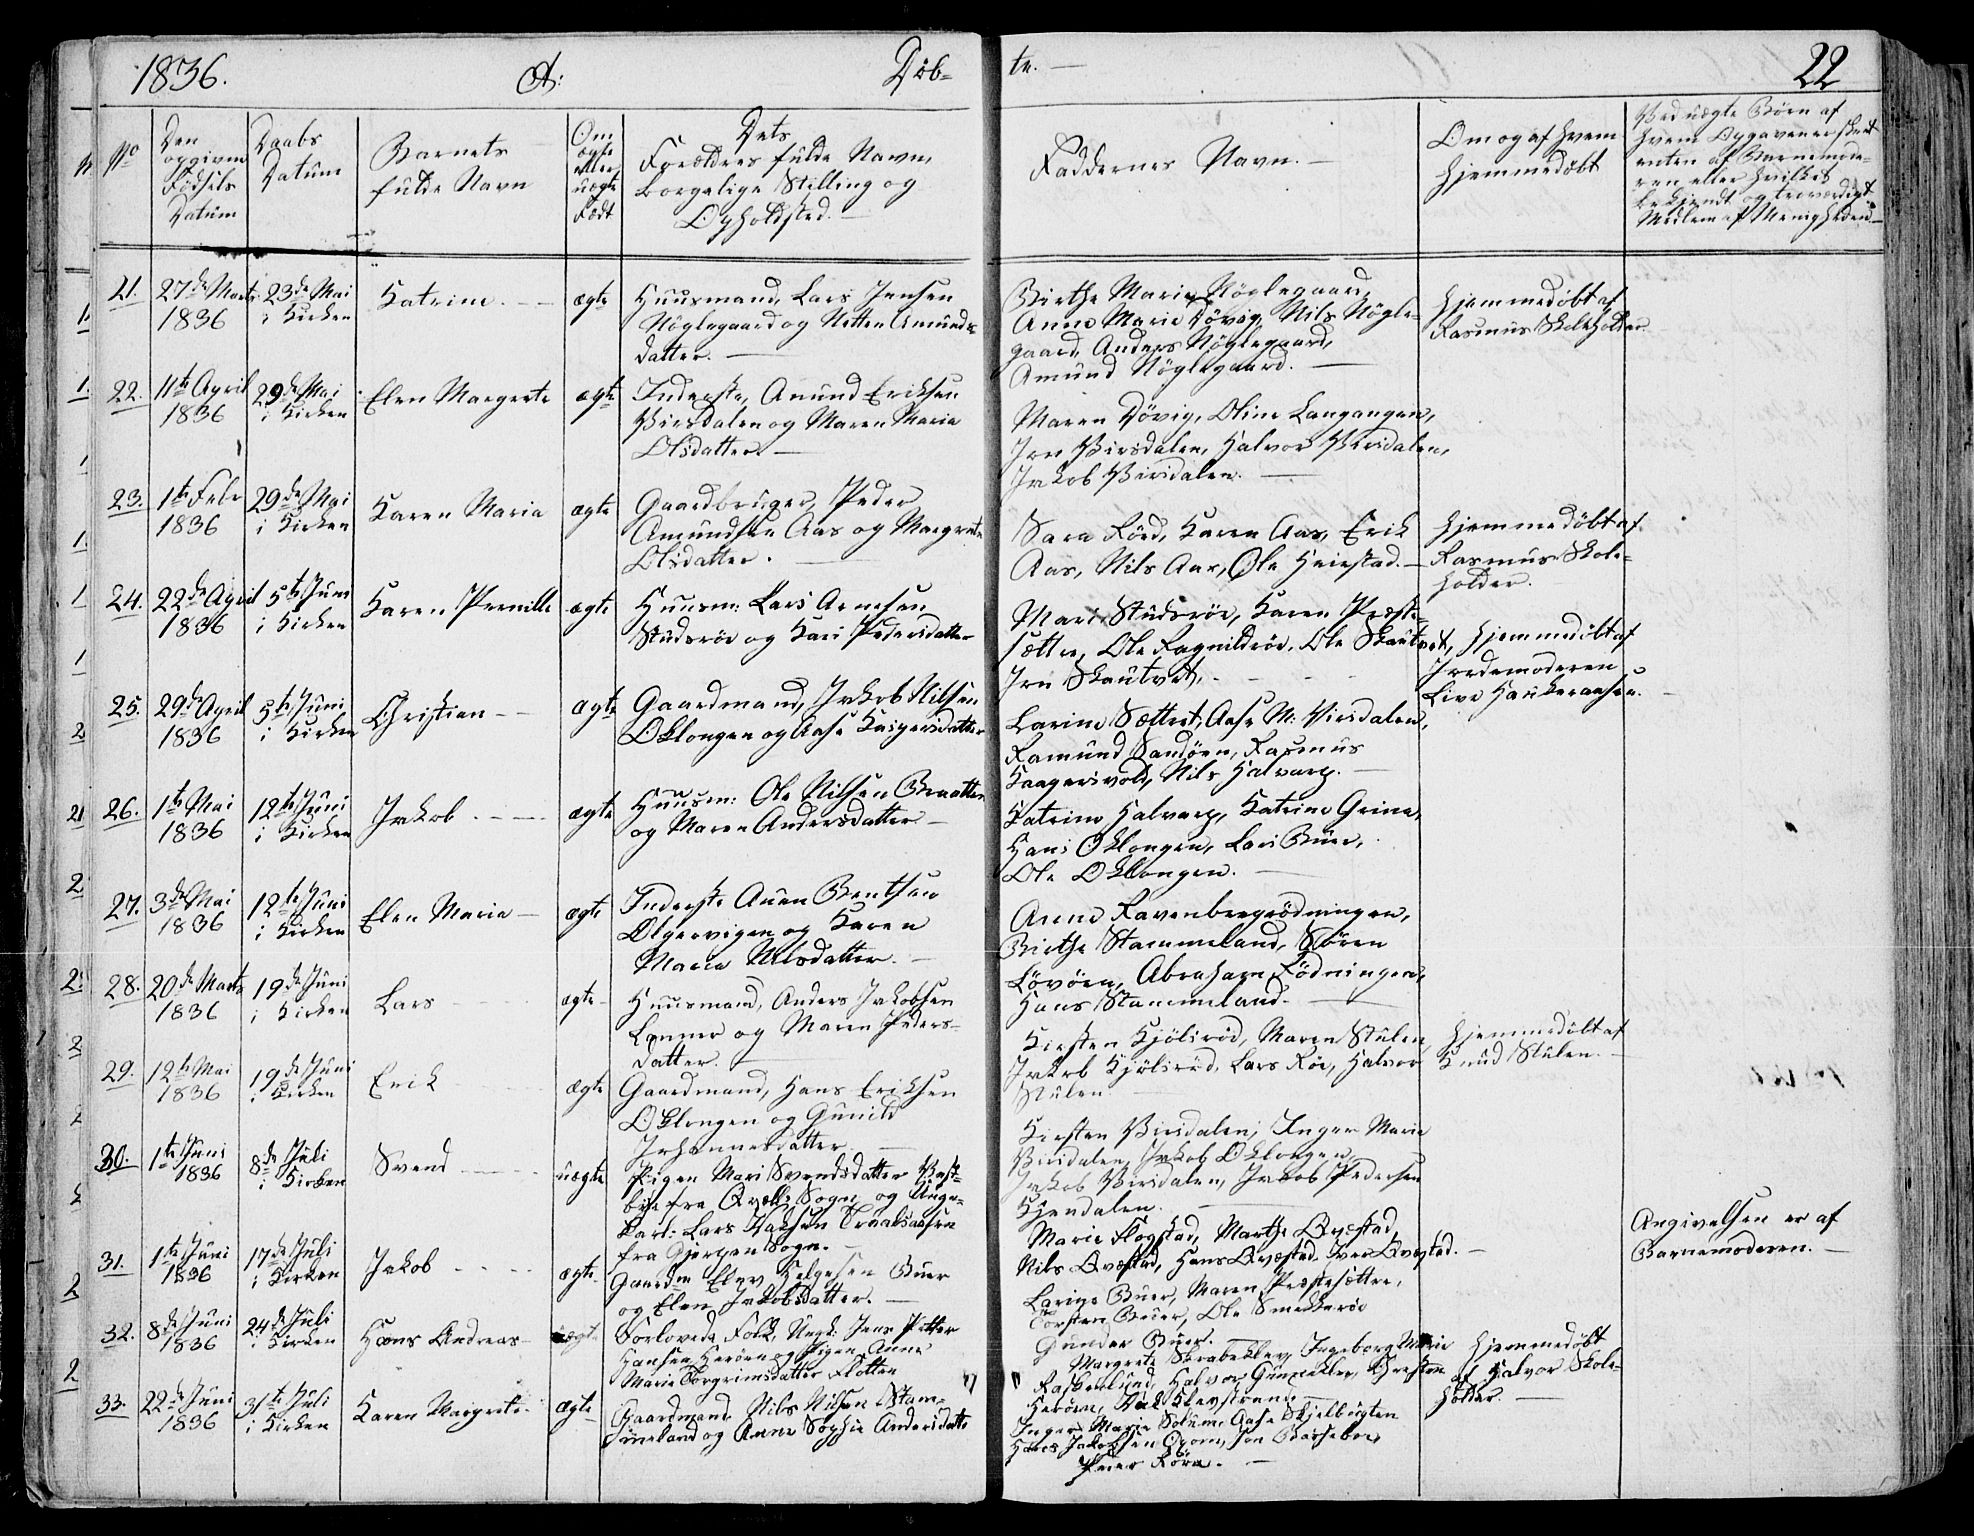 1836. A: Döb-
te. — 22
No
Den
opgivne
Födsels
Datum
Daabs
Datum
Barnets
fulde Navn
Om
ægte
eller
uægte
Födt
Dets
Forældres fulde Navn,
borgelige Stilling og
Opholdsted. —
Faddernes Navn. —
Om og af hvem
hjemmedöbt
Ved uægte Börn af
hvem Opgaven er skeet
enten af Barnemode-
ren eller hvilket
bekjendt og troværdigt
Medlem af Menigheden —
21. 27de Marts 1836
23de Mai i Kirken
Katrine. — —
ægte
Huusmand, Lars Jensen
Nöglegaard og Netten Amunds
datter. —
Birthe Marie Nöglegaard,
Anne Marie Dövig, Nils Nögle-
gaard, Anders Nöglegaard,
Amund Nöglegaard. —
Hjemmedöbt af
Rasmus Skoleholder
22. 11te April 1836
29de Mai i Kirken
Elen Margrete
ægte
Inderste, Anund Eriksen
Virsdalen og Maren Maria
Olsdatter —
Maren Dövig, Oline Langangen,
Jon Virsdalen, Halvor Virsdalen,
Jakob Virsdalen. —
23. 1te Febr 1836
29de Mai i Kirken
Karen Maria
ægte
Gaardbruger, Peder
Amundsen Aas og Margrete
Olsdatter. —
Sara Röed, Karen Aas, Erik
Aas, Nils Aas, Ole Heiestad. —
Hjemmedöbt af
Rasmus Skole-
holder.
24. 22de April 1836
5te Juni i Kirken
Karen Pernille
ægte
Huusm: Lars Arnesen
Studsröe og Kari Pedersdatter
Mari Studsröe, Karen Præste-
sættre, Ole Ragnildröe, Ole Skautvet,
Jon Skautvet, - - -
Hjemmedöbt af
Jordemoderen
Live Haukeraasen. —
25. 29de April 1836
5te Juni i Kirken
Christian — —
ægte
Gaardmand, Jakob Nilsen
Oklongen og Aase Kaspersdatter
Larine Sættret, Aase M: Virsdalen,
Ramund Sandöen, Rasmus
Kaagerivold, Nils Halvarp. —
26. 1te Mai 1836
12te Juni i Kirken
Jakob. - - —
ægte
Huusm: Ole Nilsen Braatten
og Maren Andersdatter —
Katrine Halvarp, Katrine Grina,
Hans Oklongen, Lars Buer,
Ole Oklongen. —
27. 3de Mai 1836
12te Juni i Kirken
Elen Maria —
ægte
Inderste Auen Bentsen
Olgervigen og Karen
Maria Nilsdatter. —
Anne Ravenbergrödningen,
Birthe Stammeland, Sören
Lövöen, Abraham Rödningen,
Hans Stammeland. —
28. 20de Marts 1836
19de Juni i Kirken
Lars — — —
ægte
Huusmand, Anders Jakobsen
Lönner og Maren Peders-
datter. —
Kirsten Kjölsröd, Maren Stulen,
Jakob Kjölsröd, Lars Röe, Halvor
Stulen. —
Hjemmedöbt af
Knud Stulen. —
29. 12te Mai 1836
19de Juni i Kirken
Erik
ægte
Gaardmand, Hans Eriksen
Oklongen og Gunild
Johannesdatter —
Kirsten Virsdalen, Inger Marie
Virsdalen, Jakob Oklongen,
Jakob Virsdalen, Jakob Pedersen
Kjendalen. —
30. 1te Juni 1836
8de Juli i Kirken
Svend — — —
uægte
Pigen Mari Svendsdatter
fra Sogn, og Unge-
karl: Lars
fra Gjerpen Sogn. —
Marie Flogstad, Marthe Qvestad,
Nils Qvestad, Hans Qvestad, Iver Qvestad. —
Angivelsen er af
Barnemoderen. —
31. 1te Juni 1836
17de Juli i Kirken
Jakob - - - -
ægte
Gaardm Elev Helgesen Buer
og Elen Jakobsdatter. —
Larine Buer, Maren Præstesættre,
Torsten Buer, Ole Smekkeröe
Gunder Buer. —
32. 8de Juni 1836
24de Juli i Kirken
Hans Andreas —
uægte
Forlovede Folk, Ungk: Jens Petter
Hansen Heröen og Pigen Anne
Marie Torgrimsdatter Flotten
Margrete Skrabeklev, Ingeborg Marie
Raskenlund, Halvor Gunneklev, Christen
Heröen, Klevstrand —
Hjemmedöbt
af Halvor Skole-
holder. —
33. 22de Juni 1836
31te Juli i Kirken
Karen Margrete.
ægte
Gaardmand Nils Nilsen Stam-
meland og Anne Sophie Andersdatter
Inger Marie Solum, Aase Skjelbugten
Hans Jakobsen Ogorn,
Peder Röra. —